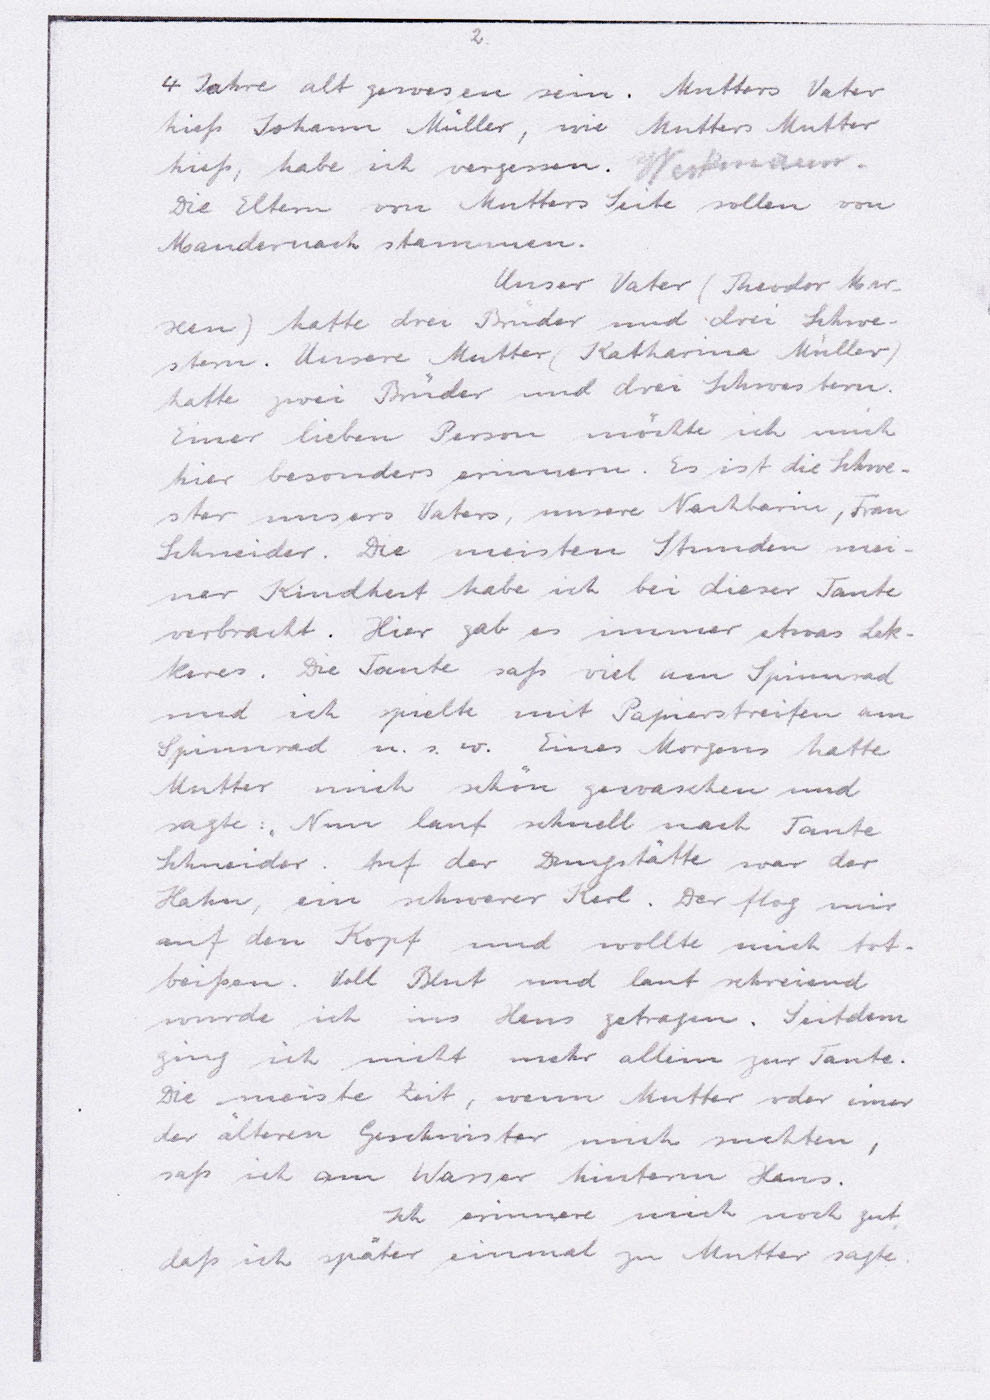 2.
4 Jahre alt gewesen sein. Mutters Vater
hieß Johann Müller, wie Mutters Mutter
hieß, habe ich vergessen.
Die Eltern von Mutters Seite sollen von
Mandernach stammen.
Unser Vater (Theodor Mar-
xen) hatte drei Brüder und drei Schwe-
stern. Unsere Mutter (Katharina Müller)
hatte zwei Brüder und drei Schwestern.
Einer lieben Person möchte ich mich
hier besonders erinnern. Es ist die Schwe-
ster unsers Vaters, unsere Nachbarin, Frau
Schneider. Die meisten Stunden mei-
ner Kindheit habe ich bei dieser Tante
verbracht. Hier gab es immer etwas Lek-
keres. Die Tante saß viel am Spinnrad
und ich spielte mit Papierstreifen am
Spinnrad u. s. w. Eines Morgens hatte
Mutter mich schön gewaschen und
sagte: „Nun lauf schnell nach Tante
Schneider. Auf der Dungstätte war der
Hahn, ein schwerer Kerl. Der flog mir
auf den Kopf und wollte mich tot-
beißen. Voll Blut und laut schreiend
wurde ich ins Haus getragen. Seitdem
ging ich nicht mehr allein zur Tante.
Die meiste Zeit, wenn Mutter oder einer
der älteren Geschwister mich suchten,
saß ich am Wasser hinterm Haus.
Ich erinnere mich noch gut,
daß ich später einmal zu Mutter sagte.